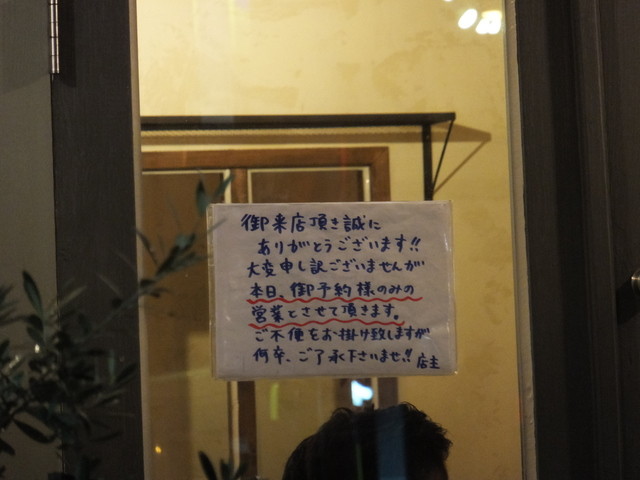 御来店頂き誠に
ありがとうございます!!
大変申し訳ございませんが
本日、御予約様のみの
営業とさせて頂きます。
ご不便をお掛け致しますが
何卒、ご了承下さいませ!! 店主